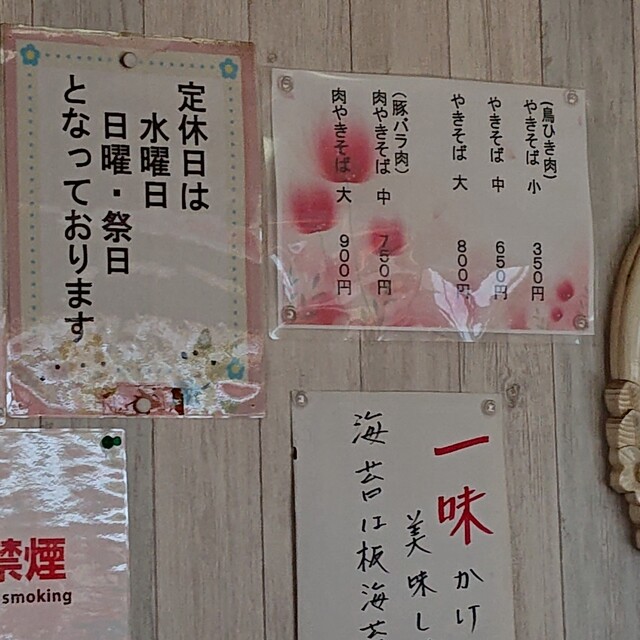 定休日は
水曜日
日曜・祭日
となっております
(鳥ひき肉)
やきそば 小 350円
やきそば 中 650円
やきそば 大 800円
(豚バラ肉)
肉やきそば 中 750円
肉やきそば 大 900円
一味かけ
美味し
海苔は板海苔
禁煙
smoking